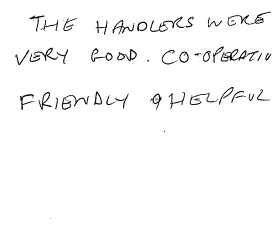 THE HANDLERS WERE
VERY GOOD. CO-OPERATIV
FRIENDLY & HELPFUL